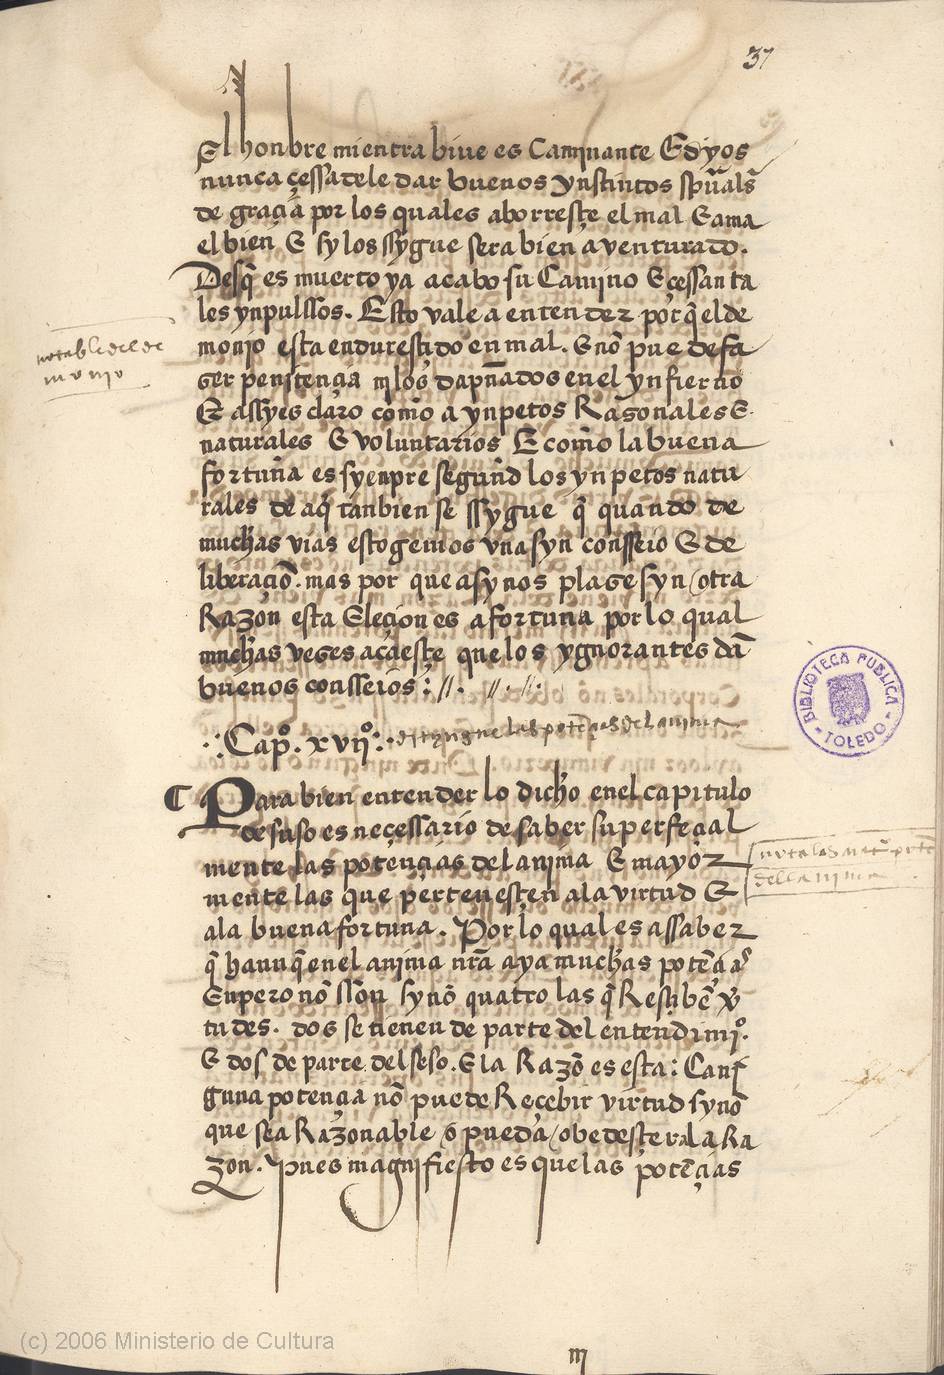 37
El honbre mientra biue es Caminante E dyos
nunca çessa de le dar buenos ynstintos spũals̃
de graçia por los quales aborresçe el mal E ama
el bien E sy los ssygue sera bien aventurado.
Desq̃ es muerto ya acabo su Camino E çessan ta
les ynpulssos. Esto vale a entender porq̃ el de
monjo esta enduresçido en mal. E nõ puede fa
ser penitençia nj los dapñados en el ynfierno
E assy es claro cõmo ay ynpetos Rasonales E
naturales E voluntarios E cõmo la buena
fortuña es syenpre segund los ynpetos natu
rales de aq̃ tanbien se ssygue q̃ quando de
muchas vias escogemos vna syn consseio E de
liberaçiõ. mas por que asy nos plase syn otra
Razon esta Eleçion es a fortuna por lo qual
muchas veses acaesçe que los ygnorantes dã
buenos consseios:
notable del de
monjo
Capº. xvijº. distyngue las potẽçias del anima
Para bien entender lo dicho en el capitulo
de suso es neçessario de saber su perfecta
mente las potençias del anjma E mayor
mente las que pertenesçen a la virtud E
a la buena fortuna. Por lo qual es assaber
q̃ haunq̃ en el anjma nr̃a aya muchas potẽçias
Enpero nõ sson synõ quatro las q̃ Resçibẽ vir
tudes. dos se tienen de parte del entendimjº.
E dos de parte del seso. E la Razõ es esta: Ca nj
guna potençia nõ puede Reçebir virtud synõ
que sea Razonable o pueda obedesçer a la Ra
zon. Pues magnifiesto es que las potẽçias
nota las
del anima
BIBLIOTECA PUBLICA
TOLEDO
(c) 2006 Ministerio de Cultura